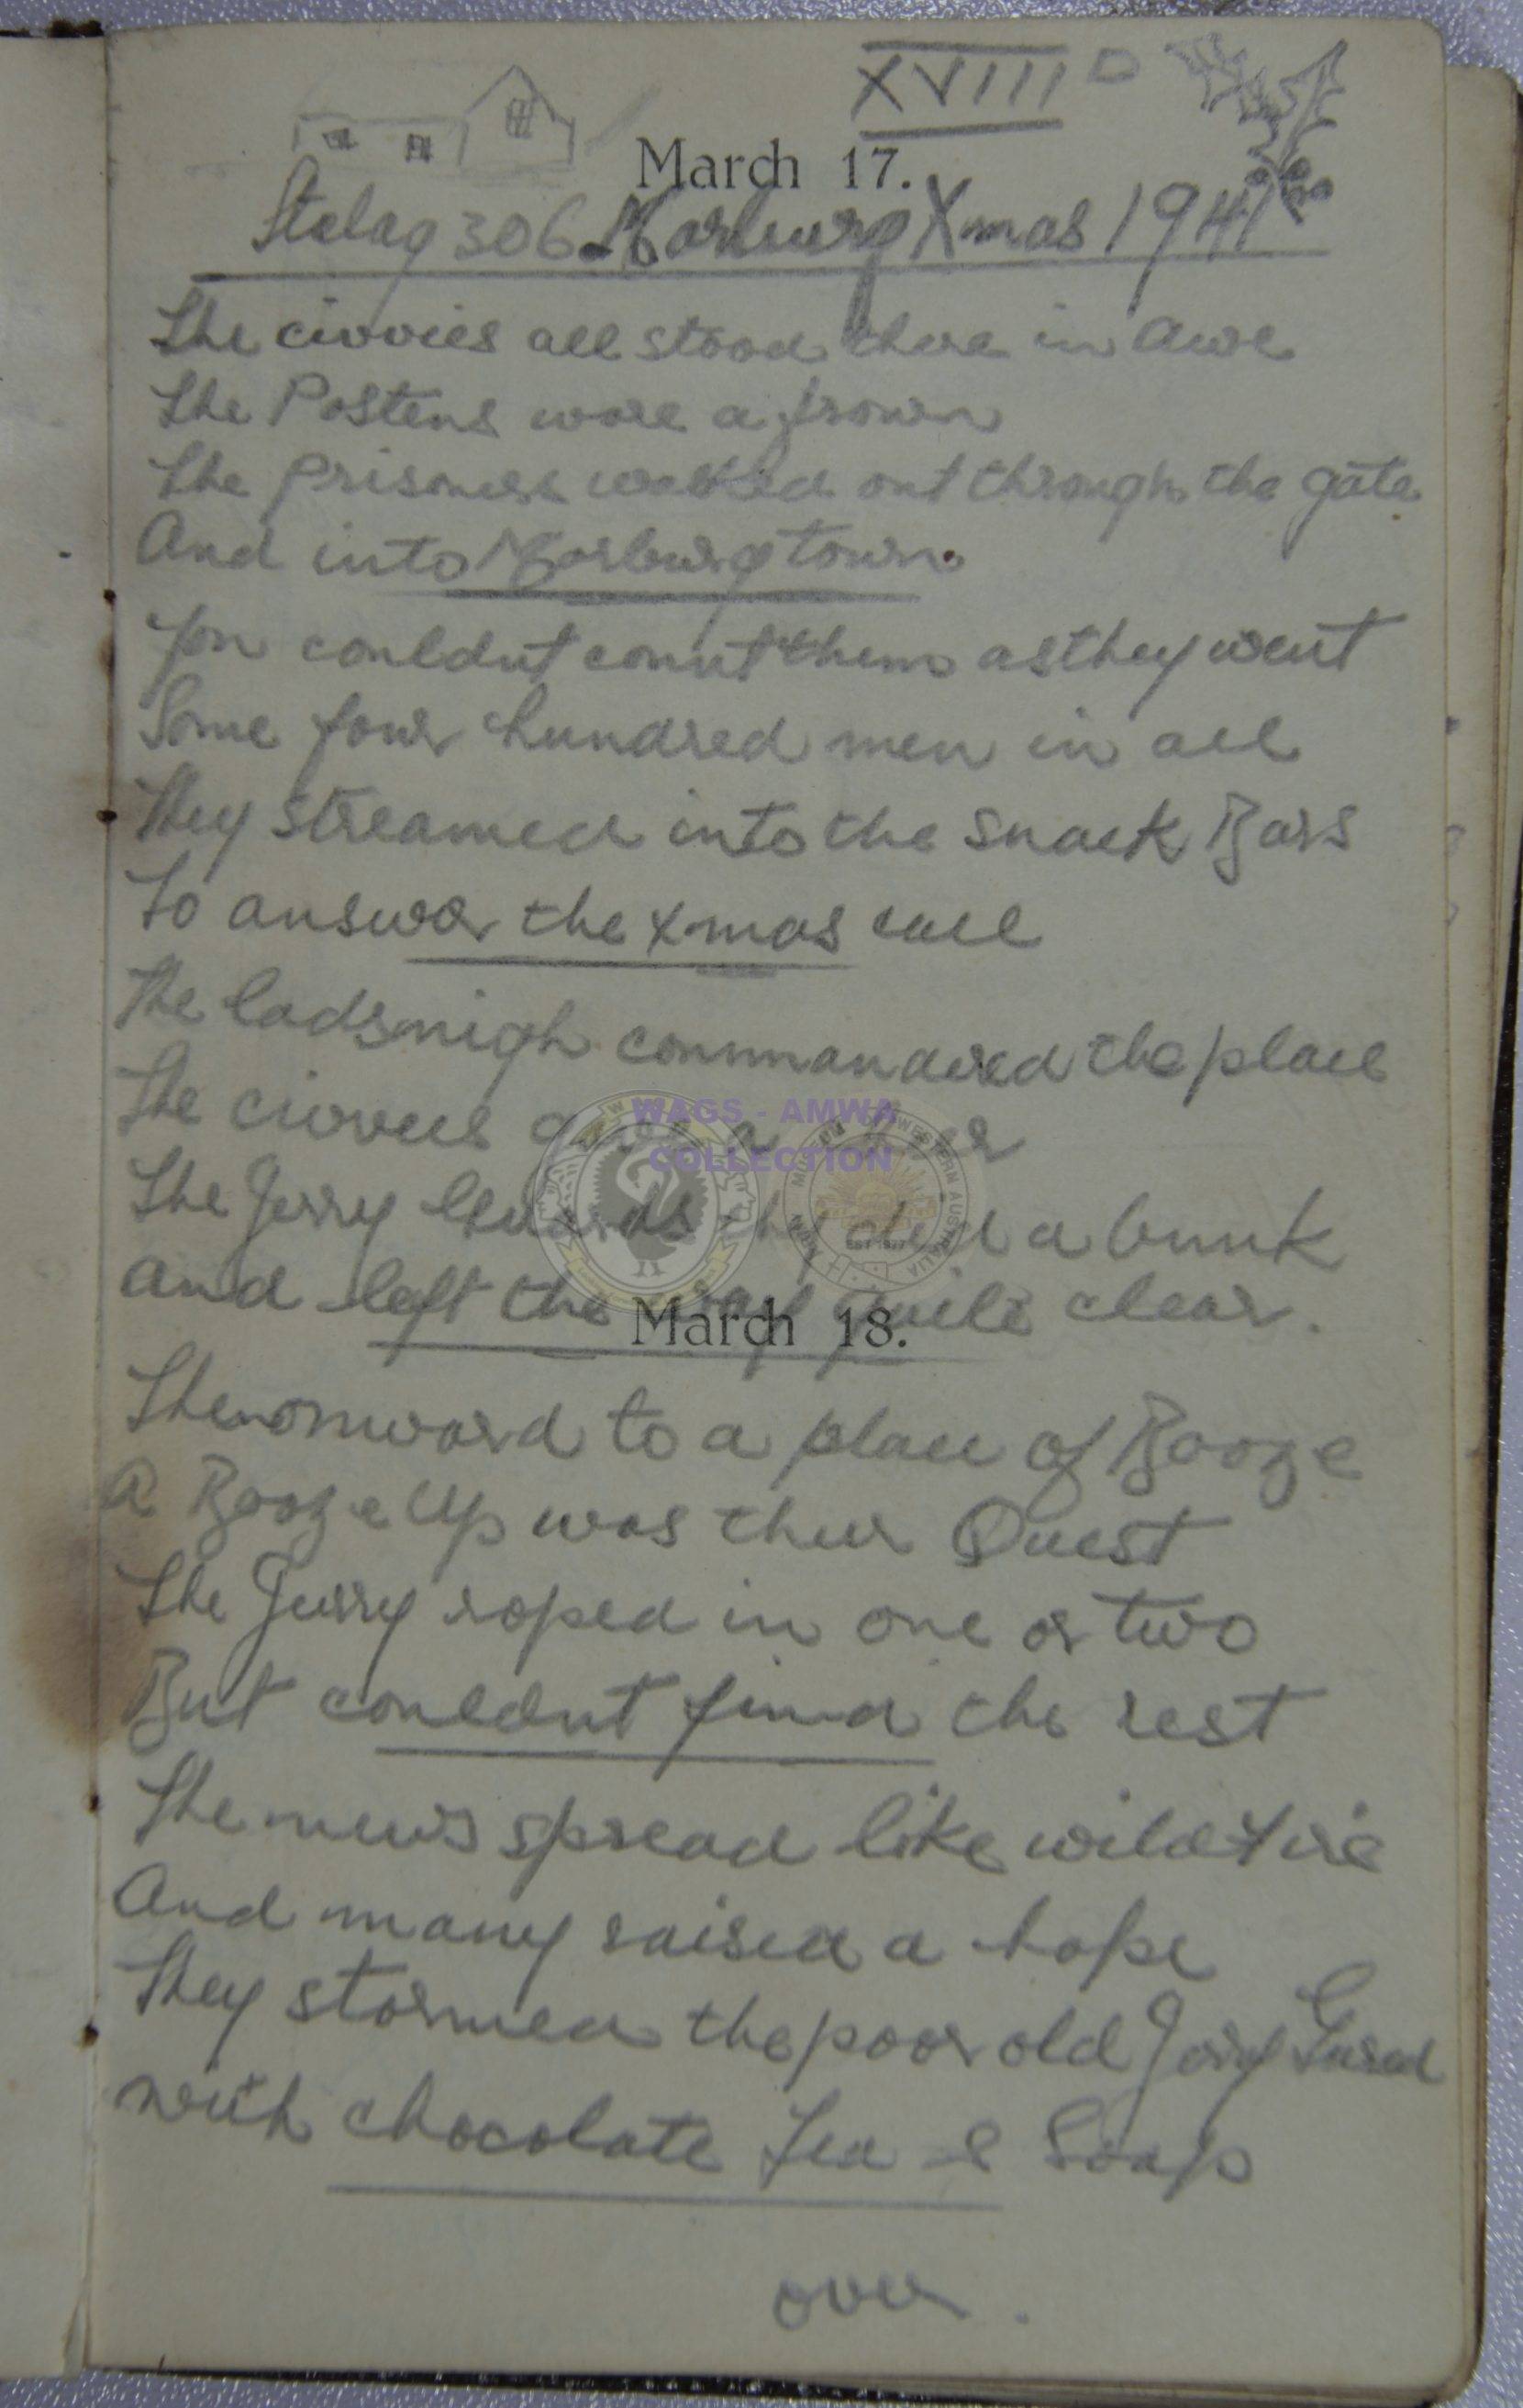 XVIII D
March 17.
Stalag 306 Marburg Xmas 1941
The civvies all stood there in Awe
The Postens wore a frown
The prisoners walked out through the gate
And into Marburg town.
You couldnt count them as they went
Some four hundred men in all
They streamed into the snack Bars
To answer the Xmas call
The lads nigh commandered the place
The civvies gave a cheer
WAGS - AMWA
COLLECTION
The Jerry Guards they did a bunk
And left the way quite clear.
March 18.
Then onward to a place of Booze
A Booze Up was their Quest
The Jerry roped in one or two
But couldnt find the rest
The news spread like wild fire
And many raised a hope
They stormed the poor old Jerry Guard
With chocolate Tea & Soap
over.